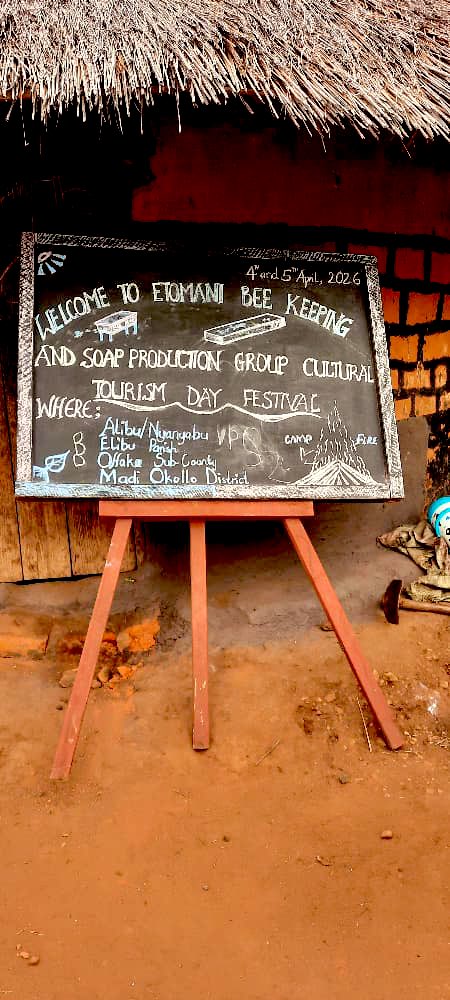 4th and 5th April, 2026
WELCOME TO ETOMANI BEE KEEPING
AND SOAP PRODUCTION GROUP CULTURAL
TOURISM DAY FESTIVAL
WHERE:
Alibu/Nyanyabu
Elibu Parish
Offaka Sub-County
Madi Okollo District
CAMP FIRE